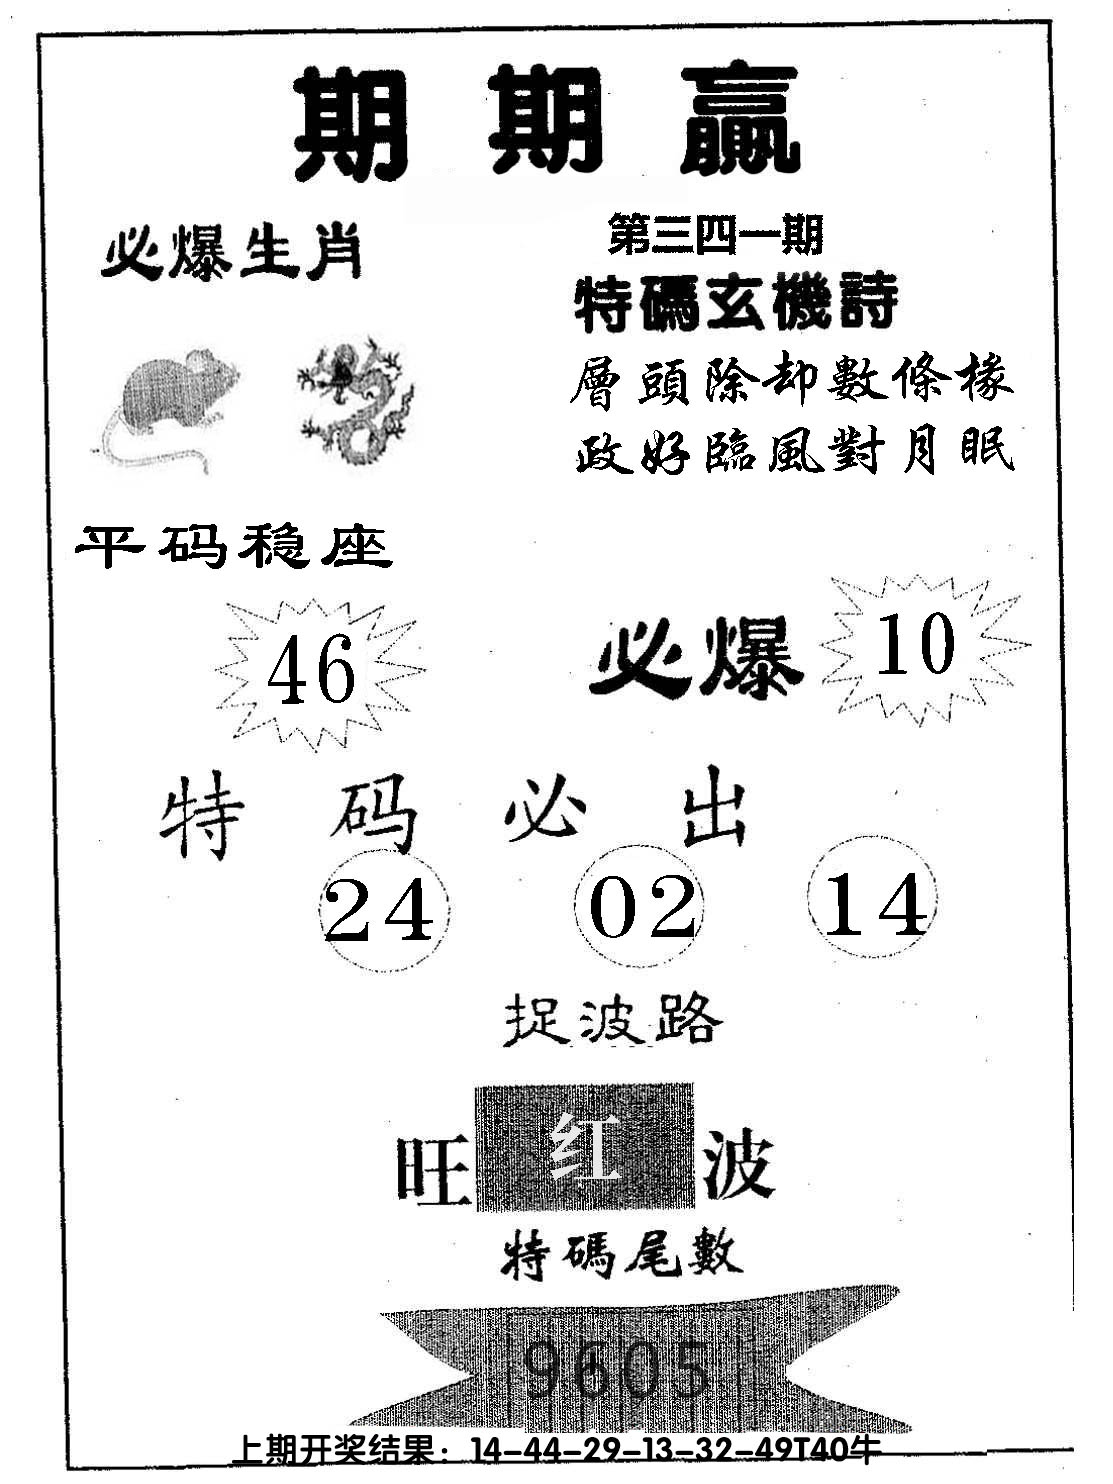 期期赢
必爆生肖
第三四一期
特碼玄機詩
層頭除却數條椽
政好臨風對月眠
平码稳座
46
必爆
10
特码必出
24 02 14
捉波路
旺红波
特碼尾數
9605
上期开奖结果：14-44-29-13-32-49T40牛